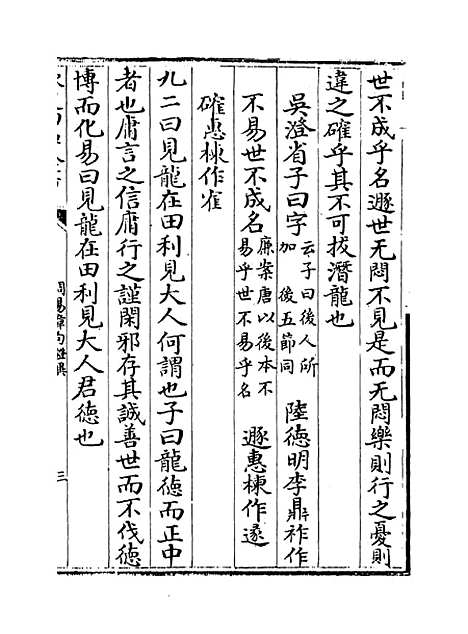 世不成乎名遯世无悶不見是而无悶樂則行之憂則
違之確乎其不可拔潛龍也
吳澄省子曰字云子曰後人所加後五節同 陸德明李鼎祚作
不易世不成名廉案唐以後本不易乎世不易乎名 遯惠棟作遂
確惠棟作寉
九二曰見龍在田利見大人何謂也子曰龍德而正中
者也庸言之信庸行之謹閑邪存其誠善世而不伐德
博而化易曰見龍在田利見大人君德也
周易章句證異
三